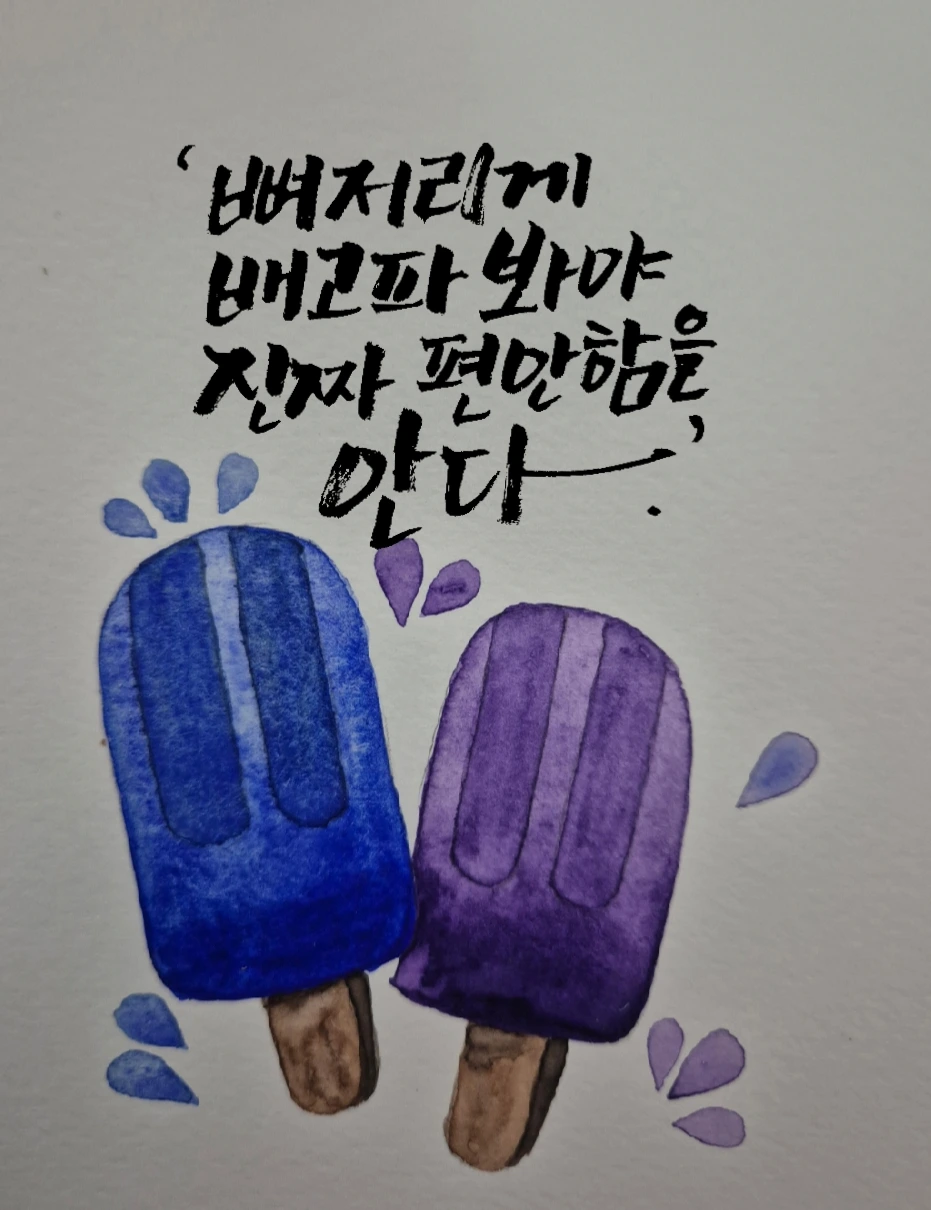 '뼈저리게
배고파 봐야
진짜 편안함을
안다.'